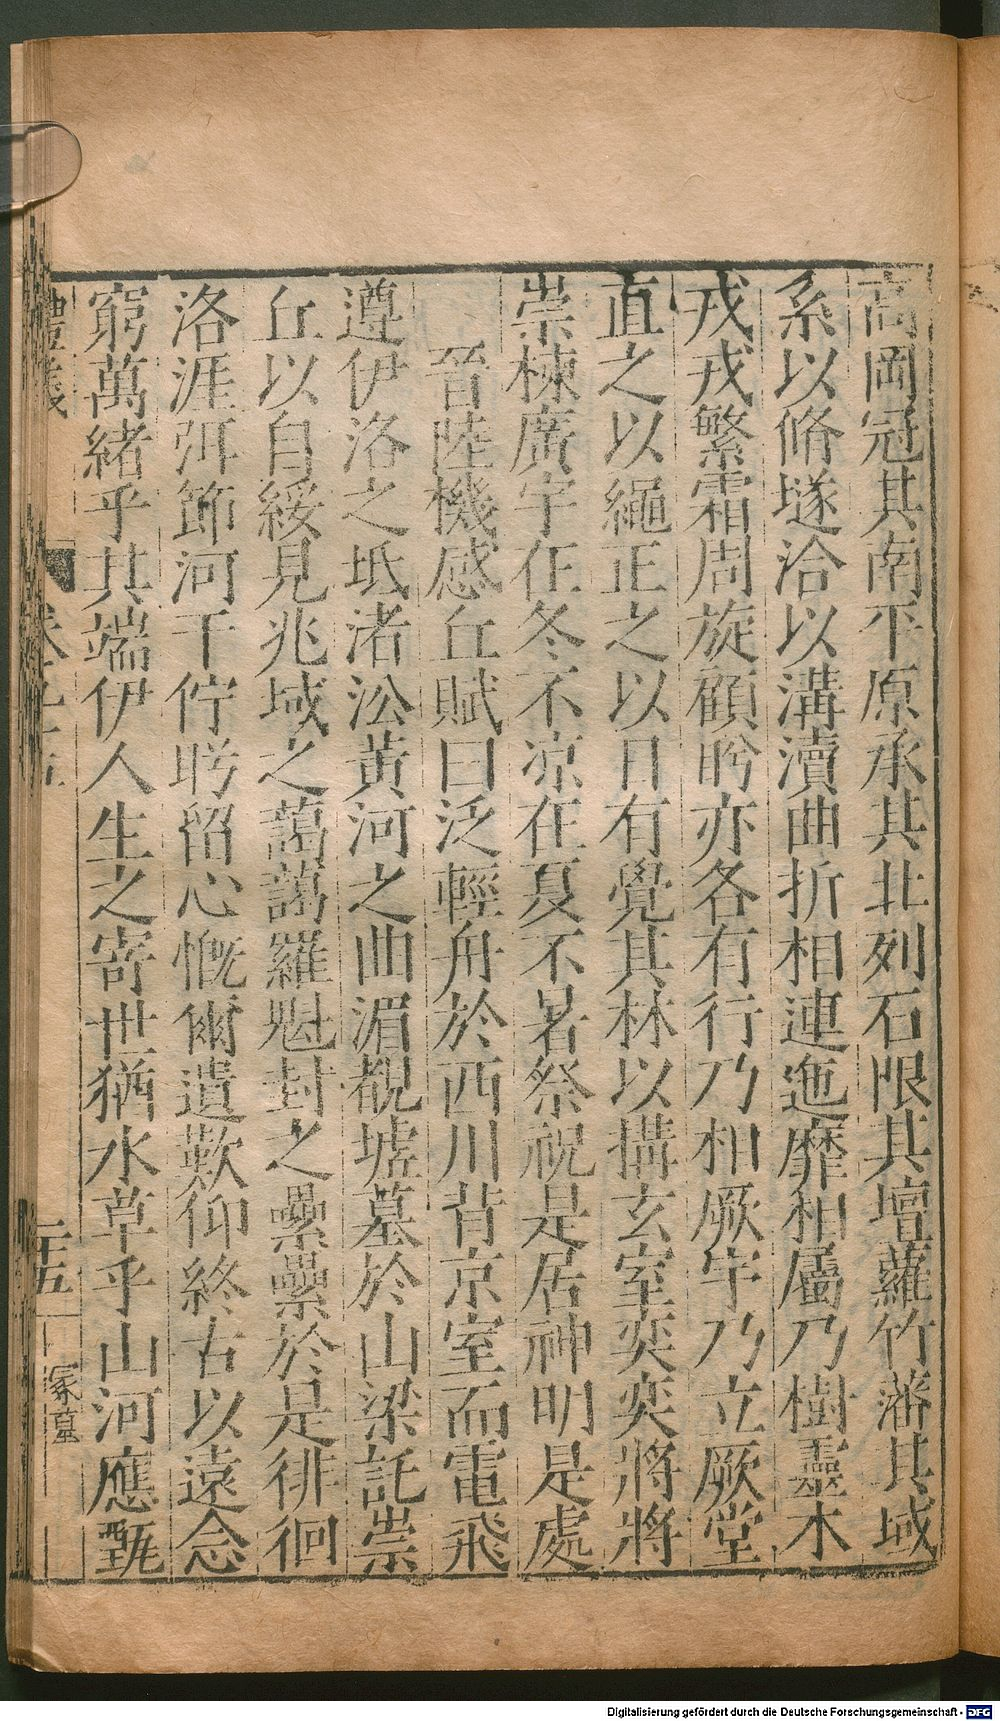 高岡冠其南平原承其北列石限其壇蘿竹藩其域
系以脩墜洽以溝瀆曲折相連迤靡相屬乃樹靈木
戎戎繁霜周旋顧眄亦各有行乃相厥宇乃立厥堂
直之以繩正之以日有覺其林以搆玄室奕奕將將
崇棟廣宇在冬不凉在夏不暑祭祝是居神明是處
晉陸機感丘賦曰泛輕舟於西川背京室而電飛
遵伊洛之坻渚沿黃河之曲湄覩墟墓於山梁託崇
丘以自綏見兆域之藹藹羅魁封之纍纍於是徘徊
洛涯弭節河干佇眄留心慨爾遣歎仰終古以遠念
窮萬緒乎其端伊人生之寄世猶水草乎山河應甄
禮義 卷 二十五 冢墓
Digitalisierung gefördert durch die Deutsche Forschungsgemeinschaft - DFG